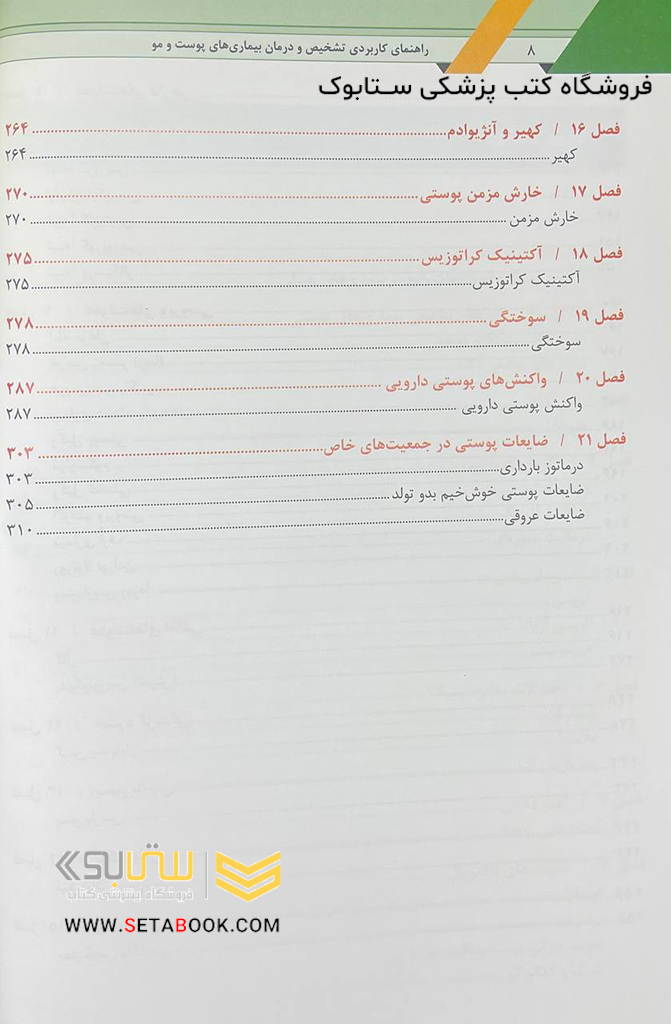 ۸ راهنمای کاربردی تشخیص و درمان بیماری‌های پوست و مو
فروشگاه کتب پزشکی ستابوک
فصل ۱۶ / کهیر و آنژیوادم ۲۶۴
کهیر ۲۶۴
فصل ۱۷ / خارش مزمن پوستی ۲۷۰
خارش مزمن ۲۷۰
فصل ۱۸ / آکتینیک کراتوزیس ۲۷۵
آکتینیک کراتوزیس ۲۷۵
فصل ۱۹ / سوختگی ۲۷۸
سوختگی ۲۷۸
فصل ۲۰ / واکنش‌های پوستی دارویی ۲۸۷
واکنش پوستی دارویی ۲۸۷
فصل ۲۱ / ضایعات پوستی در جمعیت‌های خاص ۳۰۳
درماتوز بارداری ۳۰۳
ضایعات پوستی خوش‌خیم بدو تولد ۳۰۵
ضایعات عروقی ۳۱۰
ستابوک
فروشگاه اینترنتی کتاب
WWW.SETABOOK.COM